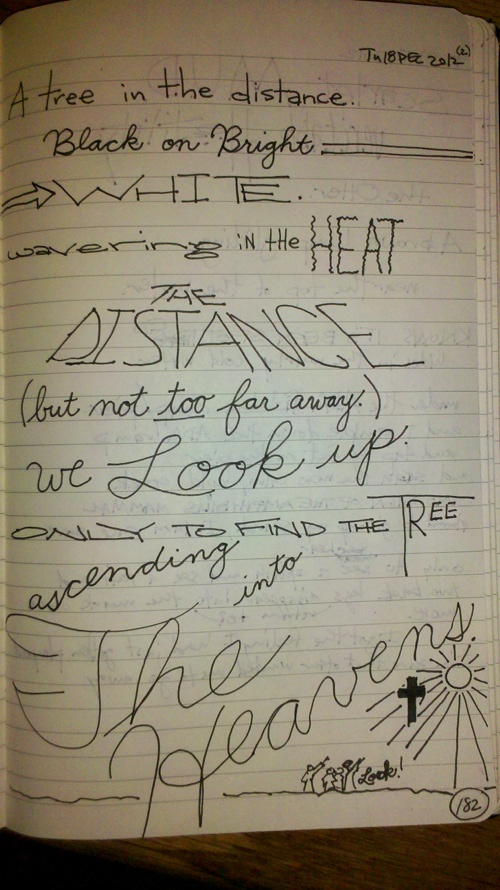 Tu 18 DEC 2012 (2)
A tree in the distance.
Black on Bright
WHITE.
wavering IN tHe HEAT
THE
DISTANCE
(but not too far away.)
we Look up.
ONLY TO FIND THE TREE
ascending into
The
Heavens.
Look!
182